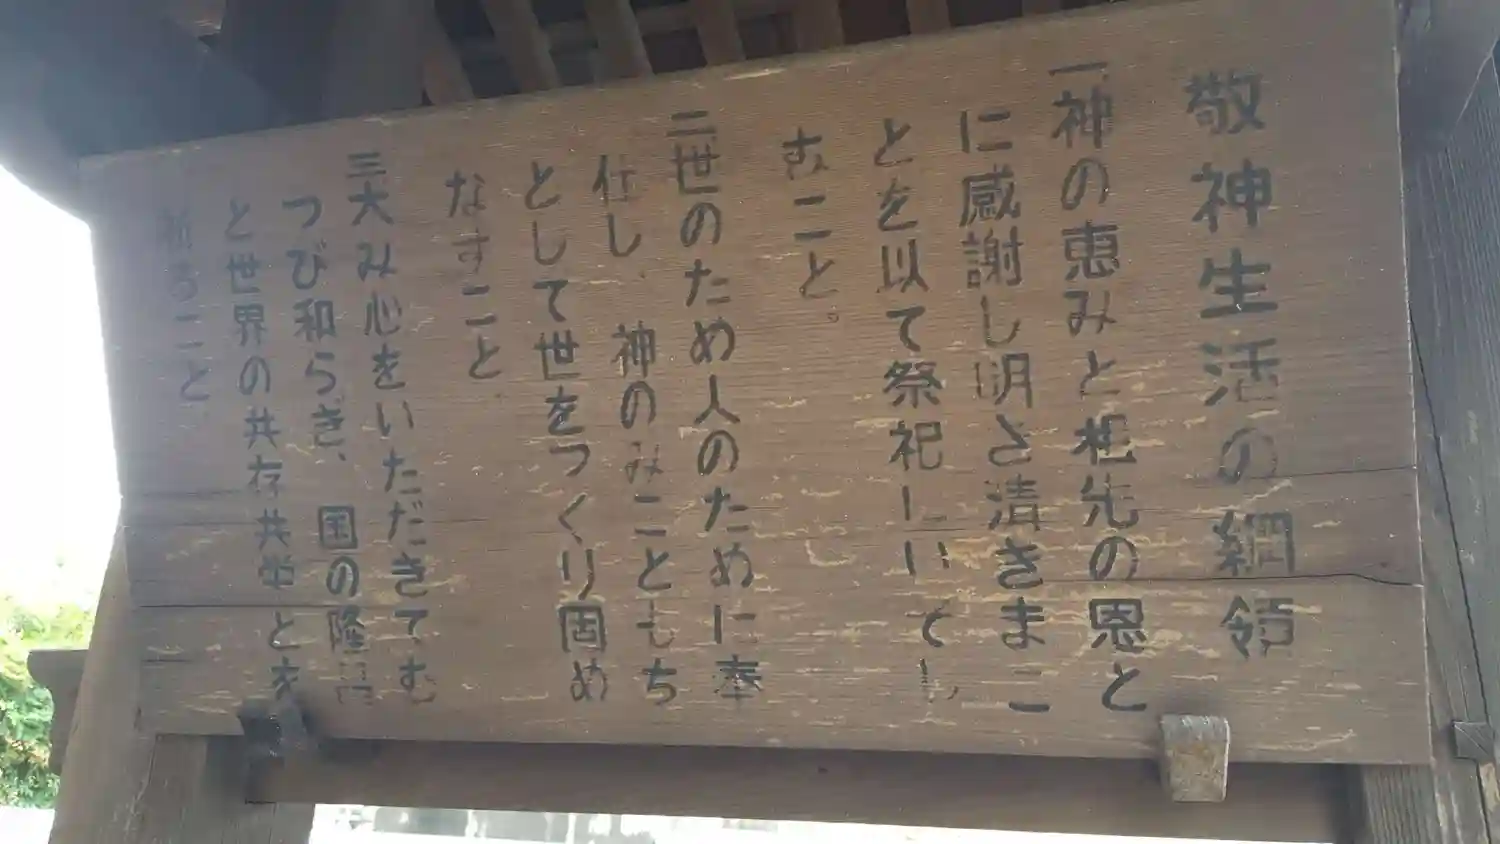 敬神生活の綱領
一神の恵みと祖先の恩と
に感謝し明き清きまこ
とを以て祭祀にいそし
むこと。
二世のため人のために奉
仕し、神のみこともち
として世をつくり固め
なすこと
三大み心をいただきてむ
つび和らぎ、国の隆昌
と世界の共存共栄とを
祈ること、